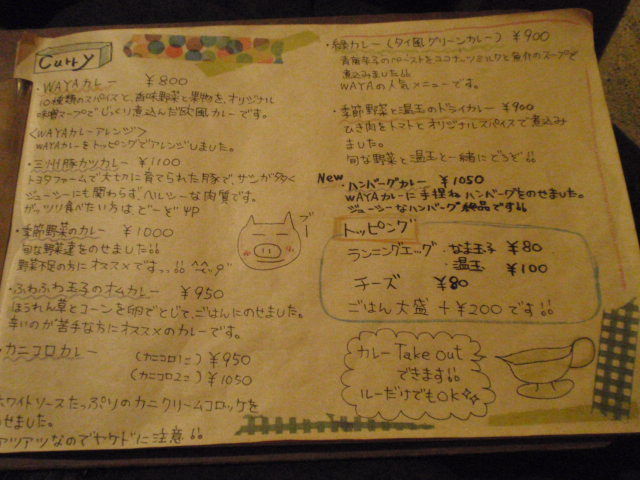 Curry
・WAYAカレー ¥800
10種類のスパイスと、香味野菜と果物を、オリジナル
味噌スープでじっくり煮込んだ欧風カレーです。
<WAYAカレーアレンジ>
WAYAカレーをトッピングでアレンジしました。
・三州豚カツカレー ¥1100
トヨタファームで大切に育てられた豚で、サシが多く
ジューシーにも関わらず、ヘルシーな肉質です。
ガッツリ食べたい方は、どーぞ
・季節野菜のカレー ¥1000
旬な野菜達をのせました!!
野菜不足の方にオススメですっっ!!
ブー
・ふわふわ玉子のオムカレー ¥950
ほうれん草とコーンを卵でとじて、ごはんにのせました。
辛いのが苦手な方にオススメのカレーです。
・カニコロカレー (カニコロ1コ) ¥950
(カニコロ2コ) ¥1050
ホワイトソースたっぷりのカニクリームコロッケを
のせました。
アツアツなのでヤケドに注意!!
・緑カレー(タイ風グリーンカレー) ¥900
青唐辛子のペーストをココナッツミルクと魚介のスープで
煮込みました!!
WAYAの人気メニューです。
・季節野菜と温玉のドライカレー ¥900
ひき肉をトマトとオリジナルスパイスで煮込み
ました。
旬な野菜と温玉と一緒にどうぞ!!
New
・ハンバーグカレー ¥1050
WAYAカレーに手捏ねハンバーグをのせました。
ジューシーなハンバーグ絶品です!!
トッピング
ランニングエッグ・なま玉子 ¥80
・温玉 ¥100
チーズ ¥80
ごはん大盛 +¥200です!!
カレーTake out
できます!!
ルーだけでもOK